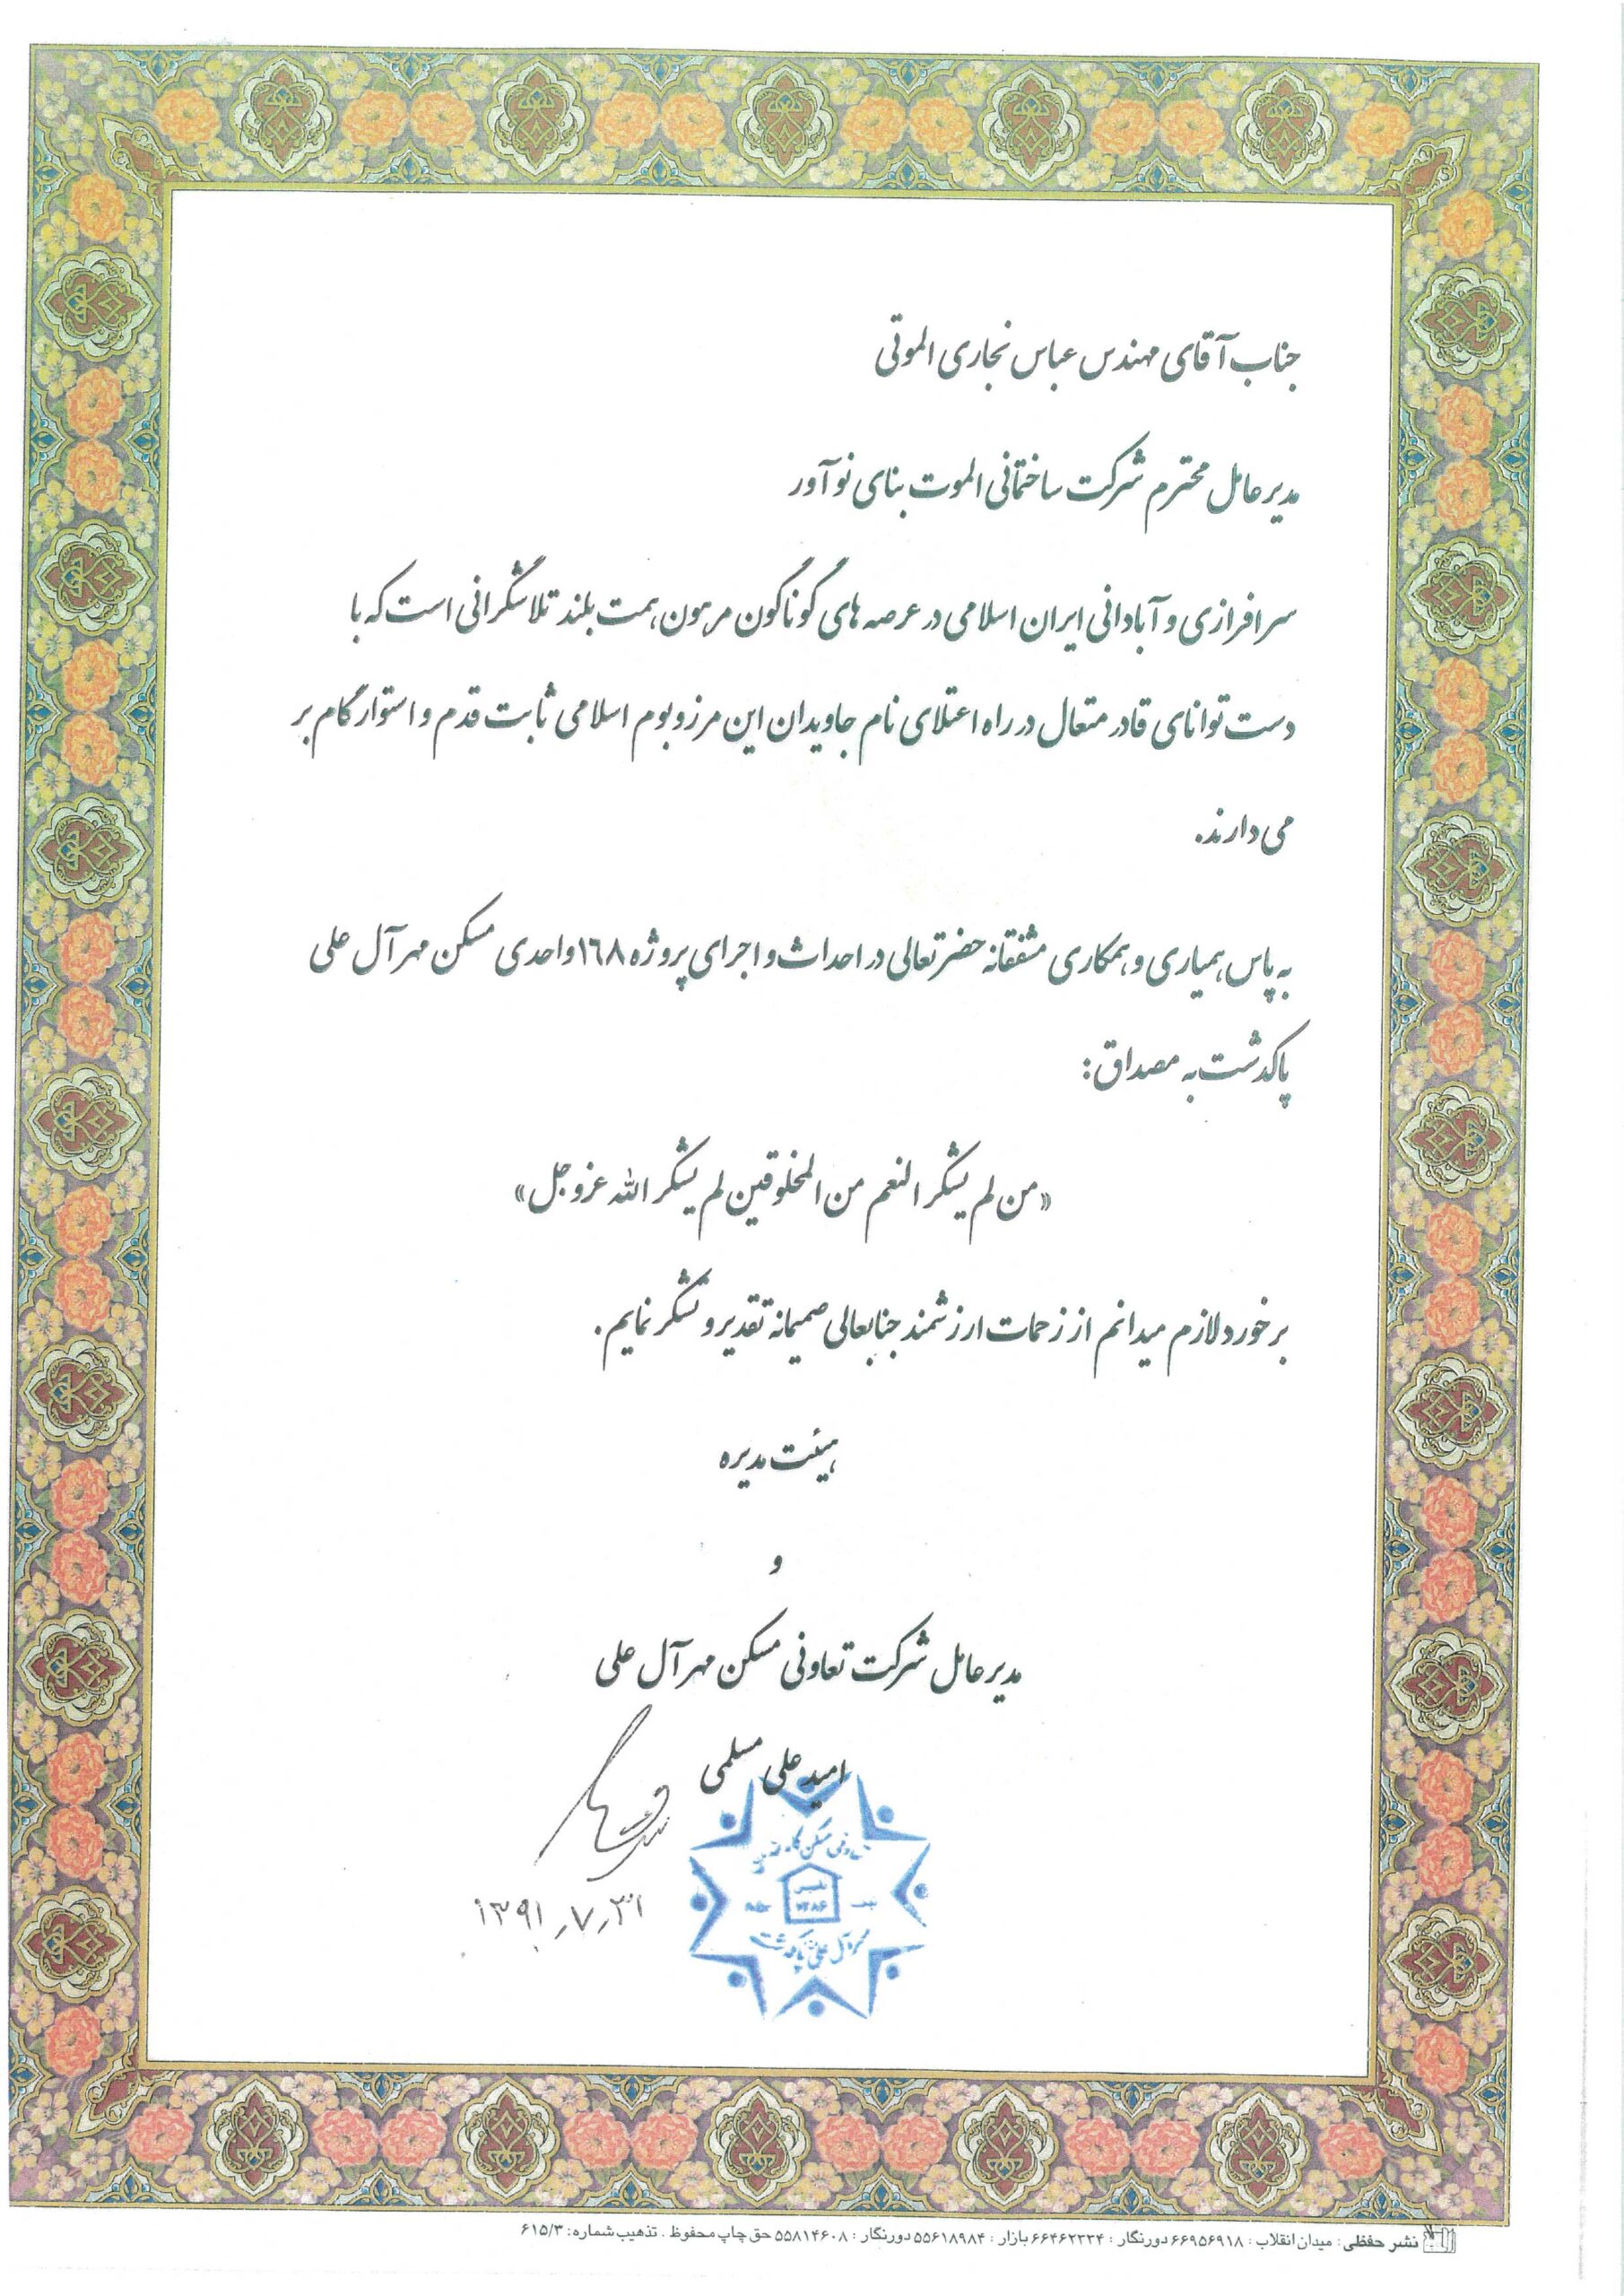 جناب آقای مهندس عباس نجاری الموتی
مدیرعامل محترم شرکت ساختمانی الموت بنای نوآور
سرافرازی و آبادانی ایران اسلامی در عرصه های گوناگون مرهون همت بلند تلاشگرانی است که با
دست توانای قادر متعال در راه اعتلای نام جاویدان این مرز و بوم اسلامی ثابت قدم و استوار گام بر
می دارند.
به پاس همیاری و همکاری مشفقانه حضرتعالی در احداث و اجرای پروژه ۱۶۸ واحدی مسکن مهر آل علی
پاکدشت به مصداق:
«من لم یشکر النعم من المخلوقین لم یشکر الله عزوجل»
بر خود لازم میدانم از زحمات ارزشمند جنابعالی صمیمانه تقدیر و تشکر نمایم.
هیئت مدیره
و
مدیرعامل شرکت تعاونی مسکن مهر آل علی
امید علی مسلمی
تعاونی مسکن
مهر آل علی پاکدشت
۱۳۹۱/۷/۳۱
نشر حفظی: میدان انقلاب: ۶۶۹۵۶۹۱۸ دورنگار: ۶۶۴۶۲۲۳۴ بازار: ۵۵۶۱۸۹۸۴ دورنگار: ۵۵۸۱۴۶۰۸ حق چاپ محفوظ. تذهیب شماره: ۶۱۵/۳